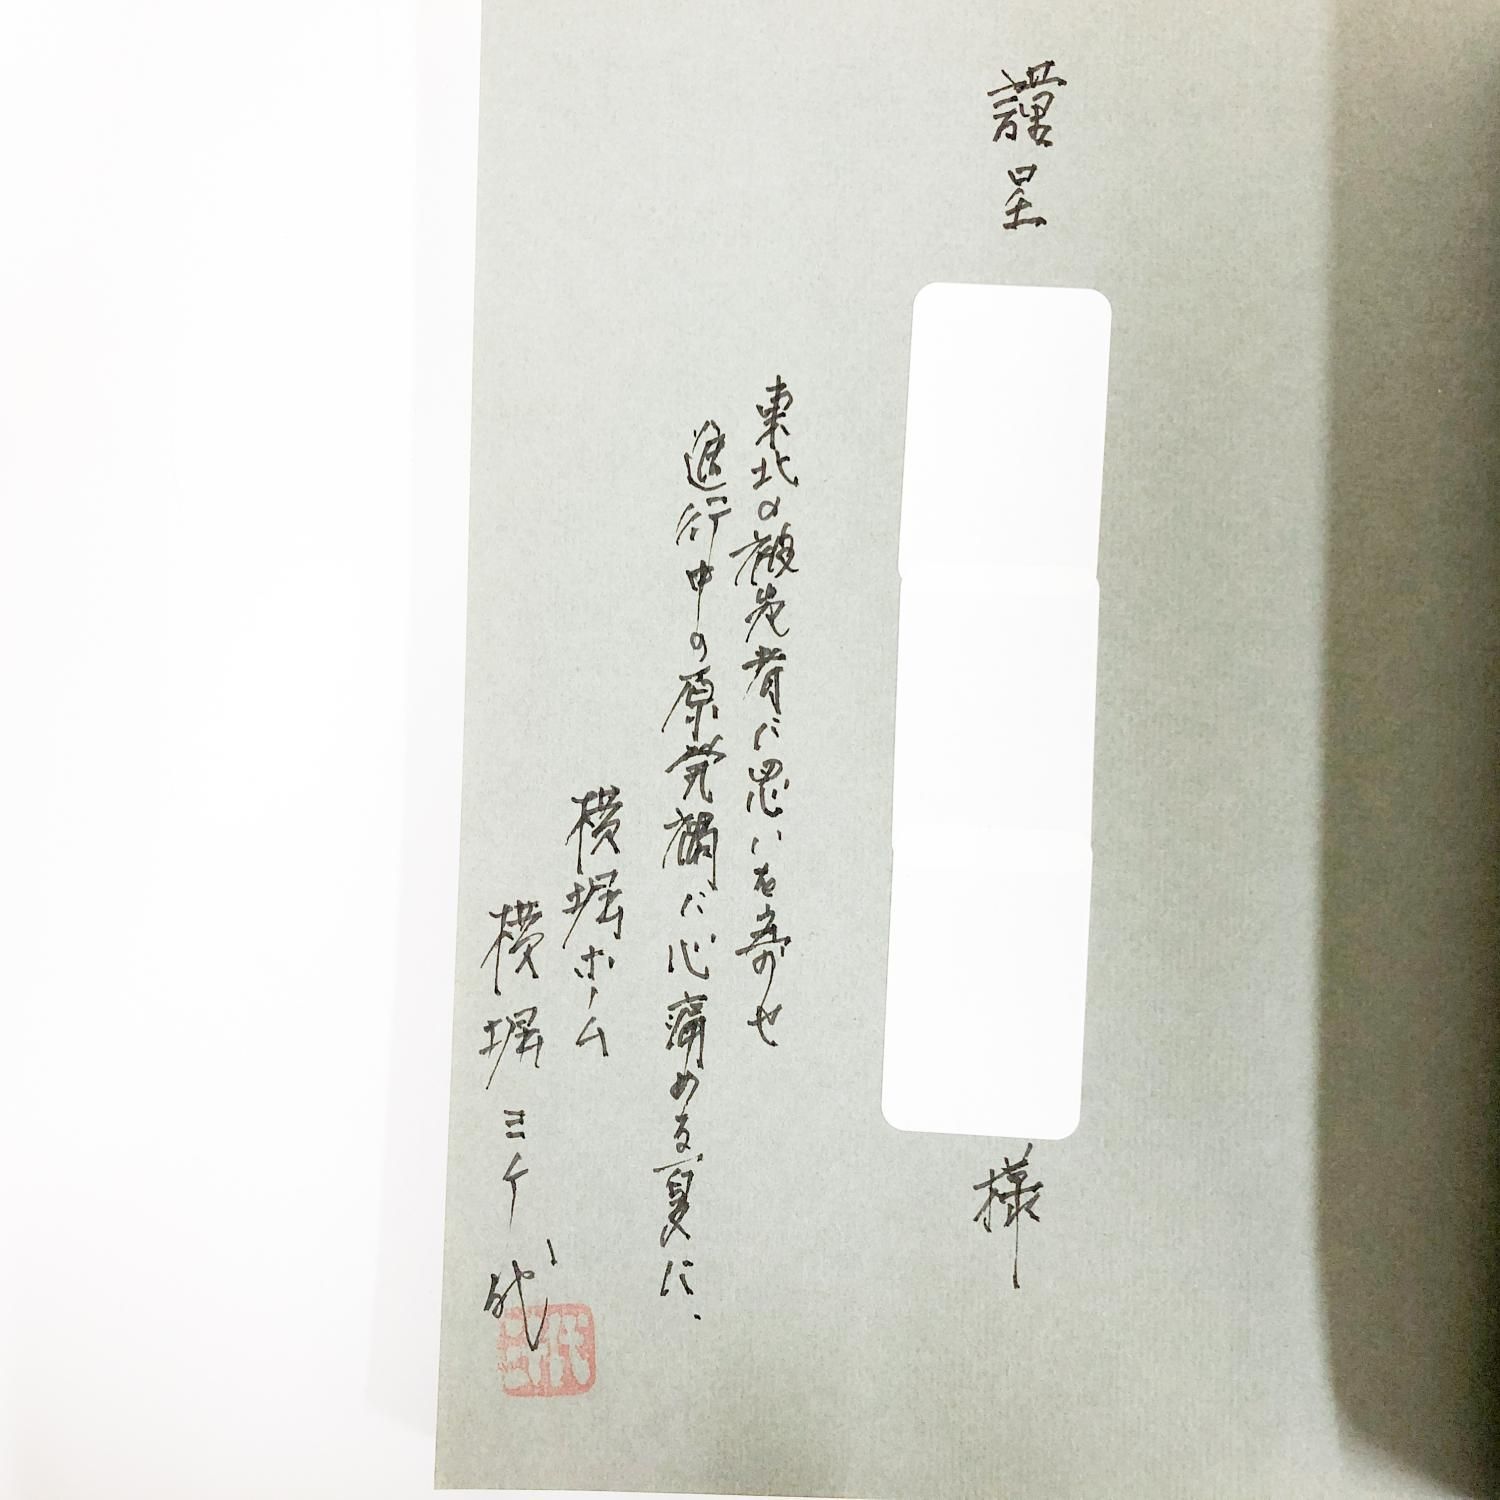 謹呈
様
東北の被災者に思いを寄せ
進行中の原発禍に心痛める夏に、
横堀ホーム
横堀三千代
三千代